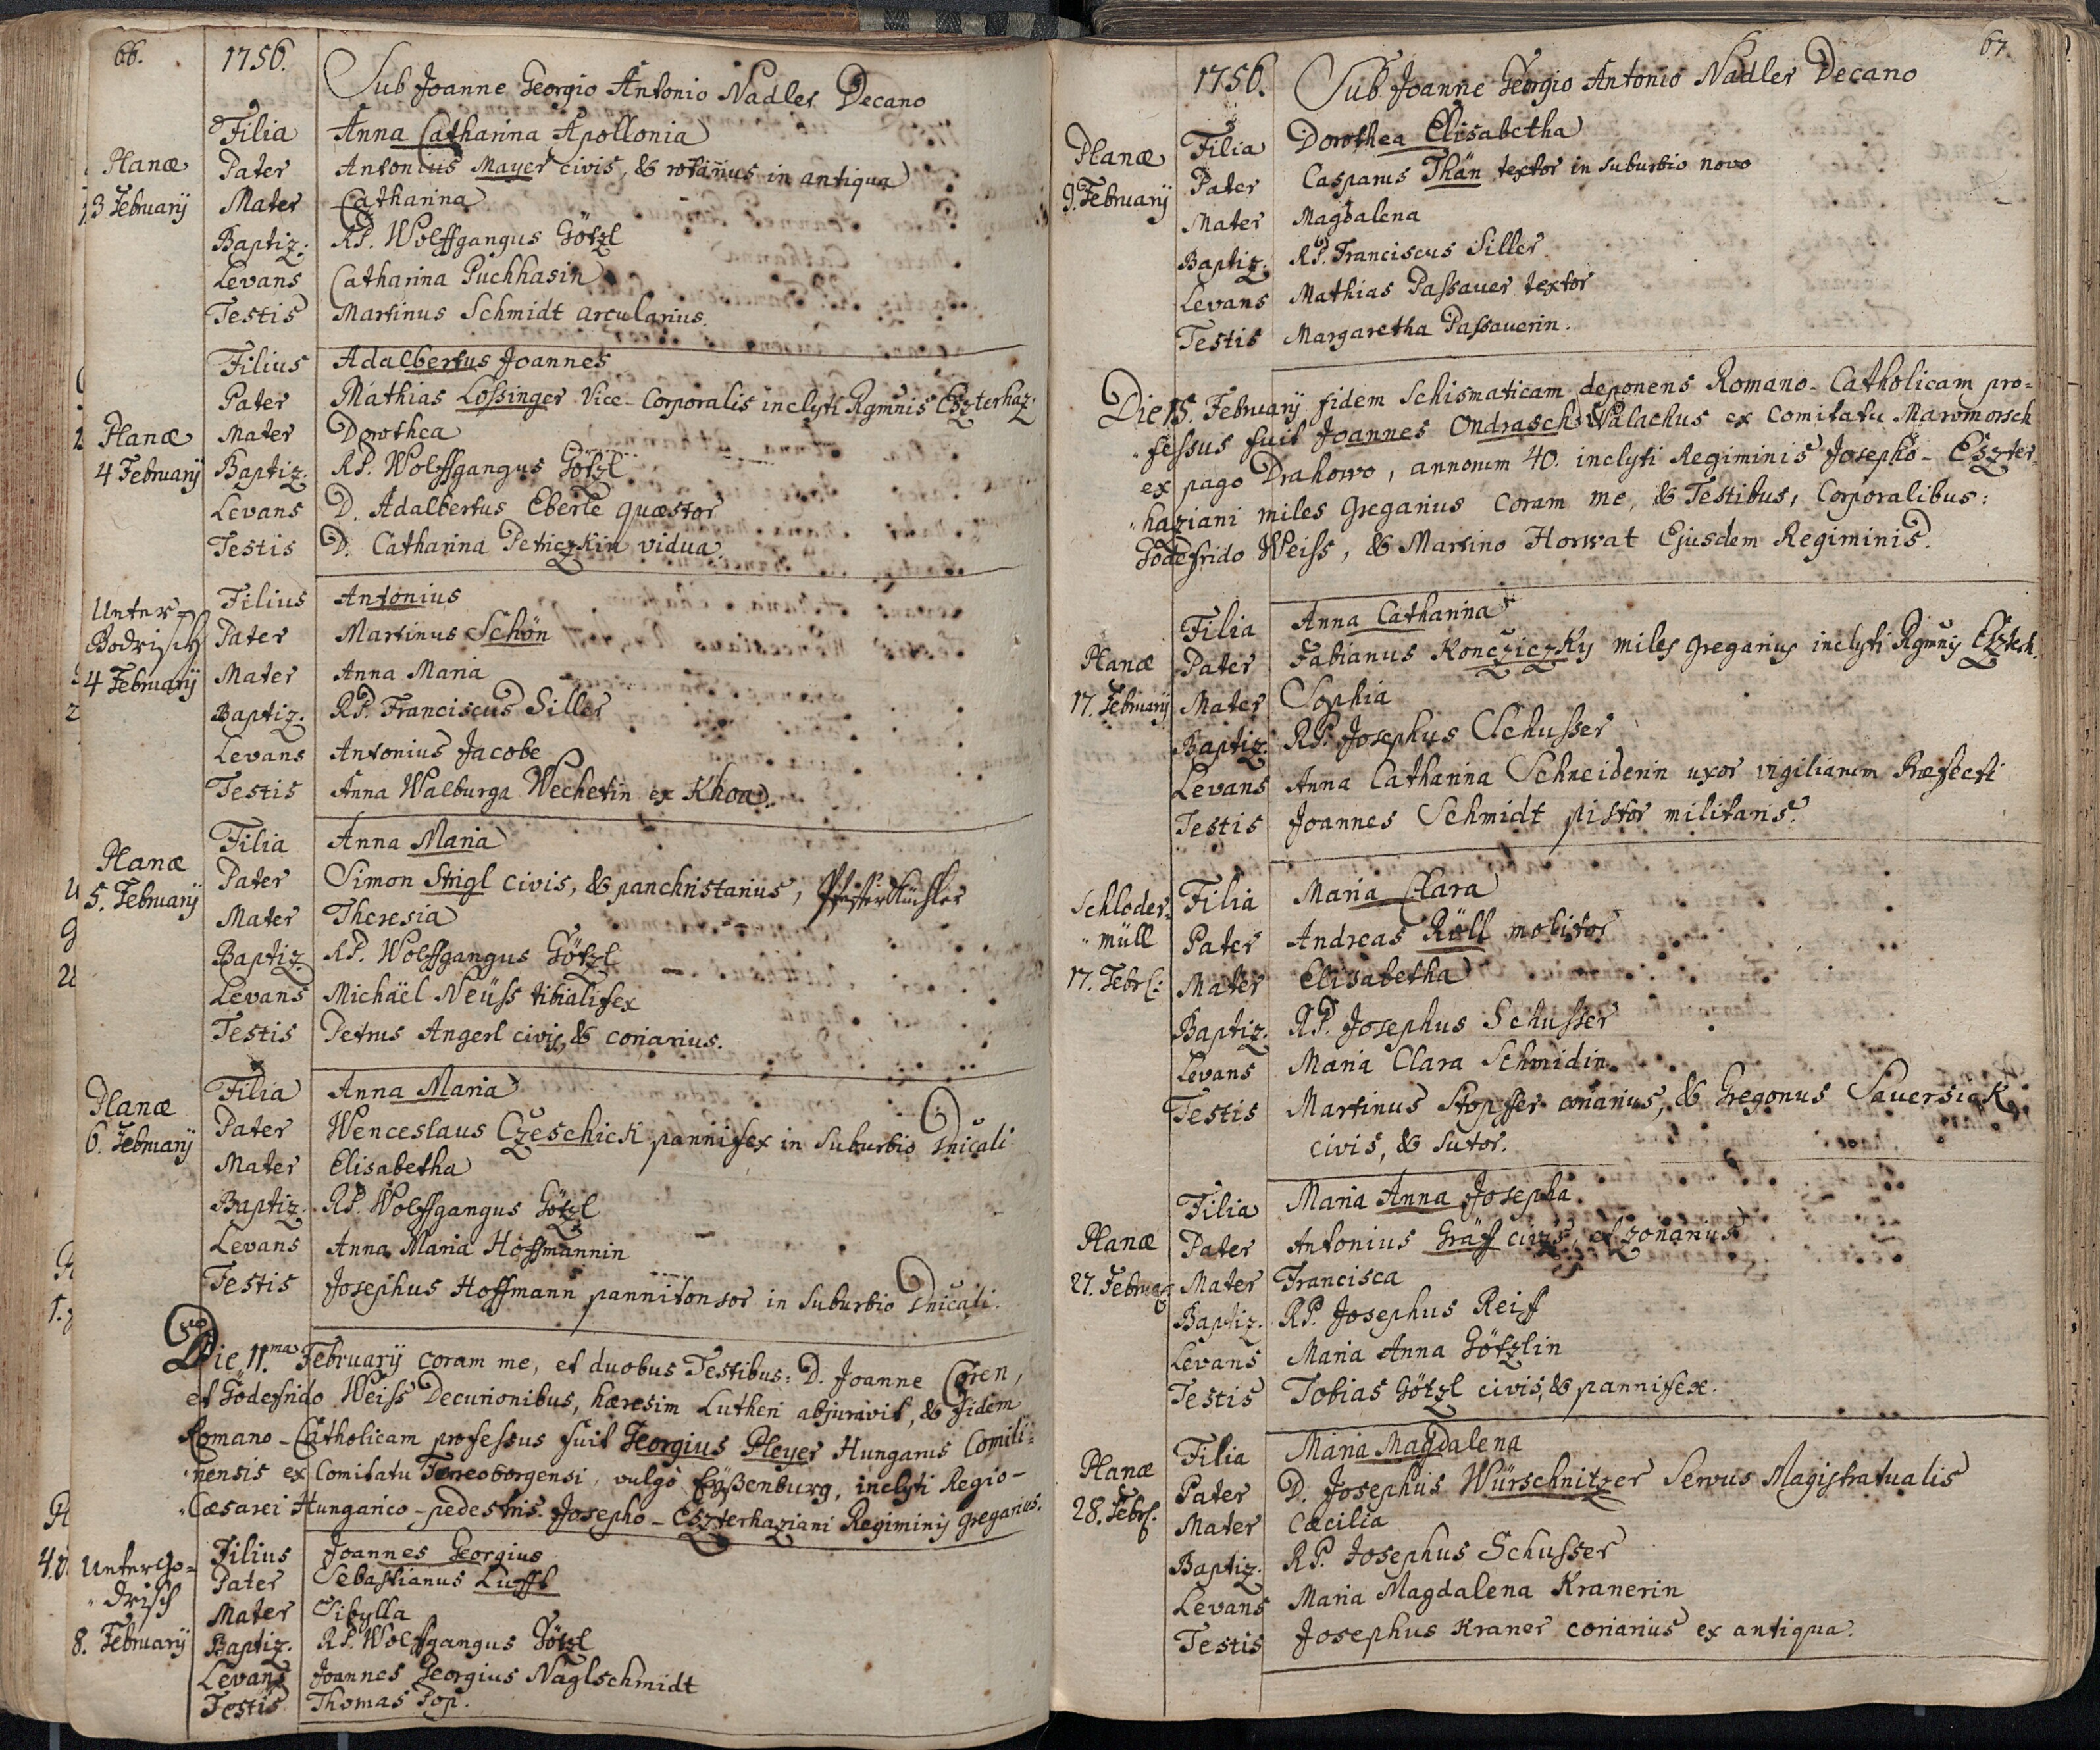 66.
1756.
Sub Joanne Georgio Antonio Nadler Decano
Planæ
3 Februarij
Filia Anna Catharina Apollonia
Pater Antonius Mayer civis, & rotarius in antiqua
Mater Catharina
Baptiz: RP. Wolffgangus Götzl
Levans Catharina Puchhasin
Testis Martinus Schmidt arcularius.
Planæ
4 Februarij
Filius Adalbertus Joannes
Pater Mathias Lossinger Vice-Corporalis inclyti Rgmnis Eszterhaz:
Mater Dorothea
Baptiz. RP. Wolffgangus Götzl
Levans D. Adalbertus Eberle quæstor
Testis D. Catharina Petriczkin vidua.
Unter=
Bodrisch
4 Februarij
Filius Antonius
Pater Martinus Schön
Mater Anna Maria
Baptiz. RP. Franciscus Siller
Levans Antonius Jacobe
Testis Anna Walburga Wechetin ex Khoa.
Planæ
5. Februarij
Filia Anna Maria
Pater Simon Strigl civis, & panchristarius, Pfefferküchler
Mater Theresia
Baptiz. RP. Wolffgangus Götzl
Levans Michäel Neüss tibialifex
Testis Petrus Angerl civis, & coriarius.
Planæ
6. Februarij
Filia Anna Maria
Pater Wenceslaus Czeschick pannifex in Suburbio Dnicali
Mater Elisabetha
Baptiz. RP. Wolffgangus Götzl
Levans Anna Maria Hoffmannin
Testis Josephus Hoffmann pannitonsor in Suburbio Dnicali.
Die 11.ma Februarij coram me, et duobus Testibus: D. Joanne Coren,
et Godefrido Weiss Decurionibus, hæresim Lutheri abjuravit, & fidem
Romano-Catholicam professus fuit Georgius Pleyer Hungarus Comiti=
nensis ex Comitatu Ferreoborgensi, vulgò Eyßenburg, inclyti Regio-
Cæsarei Hungarico-pedestris Josepho-Eszterhaziani Regiminis gregarius.
Untergo=
drisch
8. Februarij
Filius Joannes Georgius
Pater Sebastianus Lufft
Mater Sibylla
Baptiz. RP. Wolffgangus Götzl
Levans Joannes Georgius Naglschmidt
Testis Thomas Pop.
67.
1756. Sub Joanne Georgio Antonio Nadler Decano
Planæ
9. Februarij
Filia Dorothea Elisabetha
Pater Casparus Thän textor in suburbio novo
Mater Magdalena
Baptiz. RP. Franciscus Siller
Levans Mathias Passauer textor
Testis Margaretha Passauerin.
Die 15. Februarij fidem Schismaticam deponens Romano-Catholicam pro=
fessus fuit Joannes Ondrasch Walachus ex Comitatu Maromorsch
ex pago Drahowo, annorum 40. inclyti Regiminis Josepho-Eszter=
haziani miles Gregarius coram me, & Testibus, Corporalibus:
Godefrido Weiss, & Martino Horwat Ejusdem Regiminis.
Planæ
17. Februarij
Filia Anna Catharina
Pater Fabianus Koncziczky miles gregarius inclyti Rgmnis Eszterh.
Mater Sophia
Baptiz. RP. Josephus Schusser
Levans Anna Catharina Schneiderin uxor vigiliarum Præfecti
Testis Joannes Schmidt pistor militaris.
Schloder=
müll
17. Febr:
Filia Maria Clara
Pater Andreas Röll molitor
Mater Elisabetha
Baptiz. RP. Josephus Schusser
Levans Maria Clara Schmidin
Testis Martinus Stopffer coriarius, & Gregorius Sauersick
civis, & sutor.
Planæ
27. Februar
Filia Maria Anna Josepha
Pater Antonius Gräf civis, et zonarius
Mater Francisca
Baptiz. RP. Josephus Reif
Levans Maria Anna Götzlin
Testis Tobias Götzl civis, & pannifex.
Planæ
28. Febr.
Filia Maria Magdalena
Pater D. Josephus Würschnitzer Servus Magistratualis
Mater Cæcilia
Baptiz. RP. Josephus Schusser
Levans Maria Magdalena Kranerin
Testis Josephus Kraner coriarius ex antiqua.